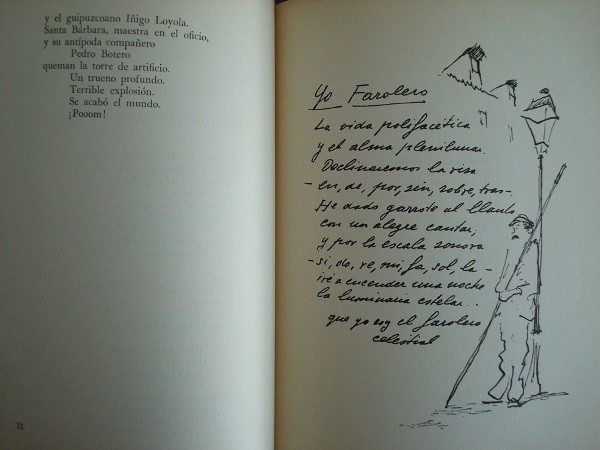 y el guipuzcoano Iñigo Loyola.
Santa Bárbara, maestra en el oficio,
y su antípoda compañero
Pedro Botero
queman la torre de artificio.
Un trueno profundo.
Terrible explosión.
Se acabó el mundo.
¡Pooom!
22
Yo Farolero
La vida polifacética
y el alma plenilunar.
Declinaremos la risa
- en, de, por, sin, sobre, tras -
He dado garrote al llanto
con un alegre cantar,
y por la escala sonora
- si, do, re, mi, fa, sol, la -
iré a encender una noche
la luminaria estelar...
que yo soy el farolero
celestial